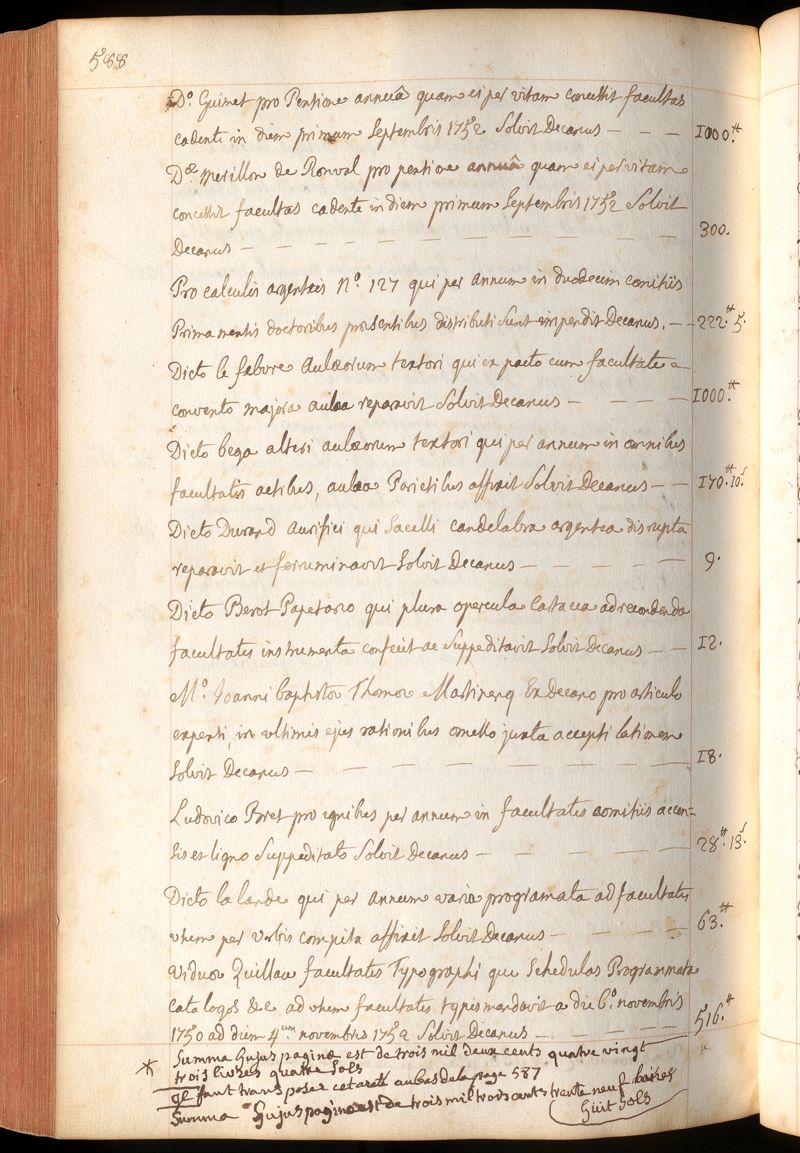 588
D.o Guinet pro Pensione annuâ quam ei per vitam concessit facultas
cadente in diem primum Septembris 1752 Solvit Decanus — — — 1000.tt
D.æ merillon de Ronval pro pensione annuâ quam ei per vitam
concessit facultas cadente in diem primum Septembris 1752 Solvit
Decanus — — — — — — — — — 300.
Pro calculis argenteis N.o 127 qui per annum in duodecim comitiis
Prima mensis doctoribus præsentibus distributi sunt impendit Decanus. — — 222.tt 5.
Dicto le febvre Aulæorum textori qui ex pacto cum facultate
convento majora aulæa reparavit Solvit Decanus — — — — 1000.tt
Dicto bega alteri aulæorum textori qui per annum in omnibus
facultatis actibus, aulæa Parietibus affixit Solvit Decanus — — 170.tt 10.s
Dicto Durand Aurifici qui Sacelli candelabra argentea disrupta
reparavit et ferruminavit Solvit Decanus — — — — 9.
Dicto Berot Papetario qui plura opercula Castacea ad recondenda
facultatis instrumenta confecit ac Suppeditavit Solvit Decanus — — 12.
M.o Joanni baptistæ Thomæ Martinenq Ex Decano pro articulo
expenti, in ultimis ejus rationibus omesso juxta accepti lationem
Solvit Decanus — — — — — — — — 18.
Ludovico Bret pro ignibus per annum in facultatis comitiis accen-
sis et ligno Suppeditato Solvit Decanus — — — — — 28.tt 13.s
Dicto la lande qui per annum varia programata ad facultatis
usum per Urbis compita affixit Solvit Decanus — — — — 63.tt
Viduæ Quillau facultatis Typographi quæ Schedulas Programmata
Catalogos &c ad usum facultatis typis mandavit a die 6.o novembris
1750 ad diem 4.um novembris 1752 Solvit Decanus — — — — — 516.tt
* Summa hujus paginæ est de trois mil deux cents quatre vingt
trois livres quatre Sols
il faut transposer cet areté au bas de la page 587
Summa hujus paginæ est de trois mil trois cents trente neuf livres
huit sols